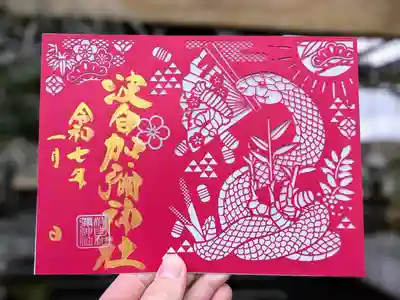 波自加彌神社
令和七年
一月　日